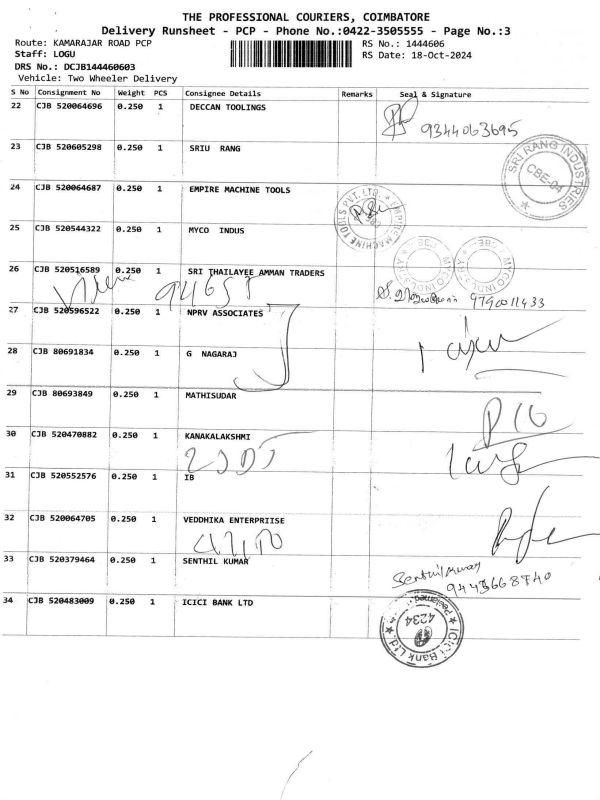 THE PROFESSIONAL COURIERS, COIMBATORE
Delivery Runsheet - PCP - Phone No.:0422-3505555 - Page No.:3
Route: KAMARAJAR ROAD PCP
RS No.: 1444606
Staff: LOGU
RS Date: 18-Oct-2024
DRS No.: DCJB144460603
Vehicle: Two Wheeler Delivery
S No Consignment No Weight PCS Consignee Details Remarks Seal & Signature
22 CJB 520064696 0.250 1 DECCAN TOOLINGS
9344063695
23 CJB 520605298 0.250 1 SRIU RANG
SRI RANG INDUSTRIES
CBE-04
24 CJB 520064687 0.250 1 EMPIRE MACHINE TOOLS
EMPIRE MACHINE TOOLS PVT. LTD
25 CJB 520544322 0.250 1 MYCO INDUS
26 CJB 520516589 0.250 1 SRI THAILAYEE AMMAN TRADERS
9790011433
27 CJB 520596522 0.250 1 NPRV ASSOCIATES
28 CJB 80691834 0.250 1 G NAGARAJ
29 CJB 80693849 0.250 1 MATHISUDAR
30 CJB 520470882 0.250 1 KANAKALAKSHMI
31 CJB 520552576 0.250 1 IB
32 CJB 520064705 0.250 1 VEDDHIKA ENTERPRIISE
33 CJB 520379464 0.250 1 SENTHIL KUMAR
Senthilkumar
9443668740
34 CJB 520483009 0.250 1 ICICI BANK LTD
ICICI Bank Ltd.
4234